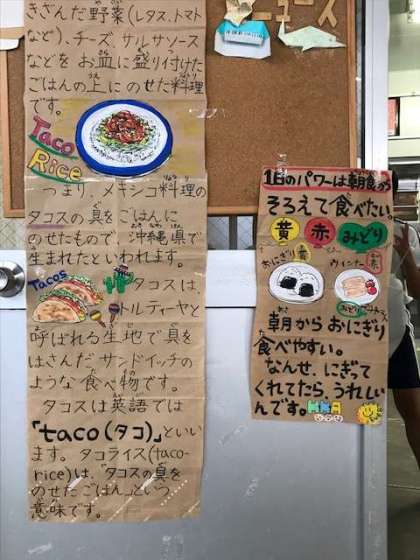 きざんだ野菜(レタス、トマト
など)、チーズ、サルサソース
などをお皿に盛り付けた
ごはんの上にのせた料理
です。
Taco
Rice
つまり、メキシコ料理の
タコスの具をごはんに
のせたもので、沖縄県で
生まれたといわれます。
Tacos
タコスは、
トルティーヤと
呼ばれる生地で具を
はさんだサンドイッチの
ような食べ物です。
タコスは英語では
「taco(タコ)」といい
ます。タコライス(taco-
rice)は、「タコスの具を
のせたごはん」という
意味です。
ニュース
1日のパワーは朝食から
そろえて食べたい。
黄 赤 みどり
おにぎり 黄
ウィンナー 赤
みどり
朝からおにぎり
食べやすい。
なんせ、にぎって
くれてたら、うれしい
んです。